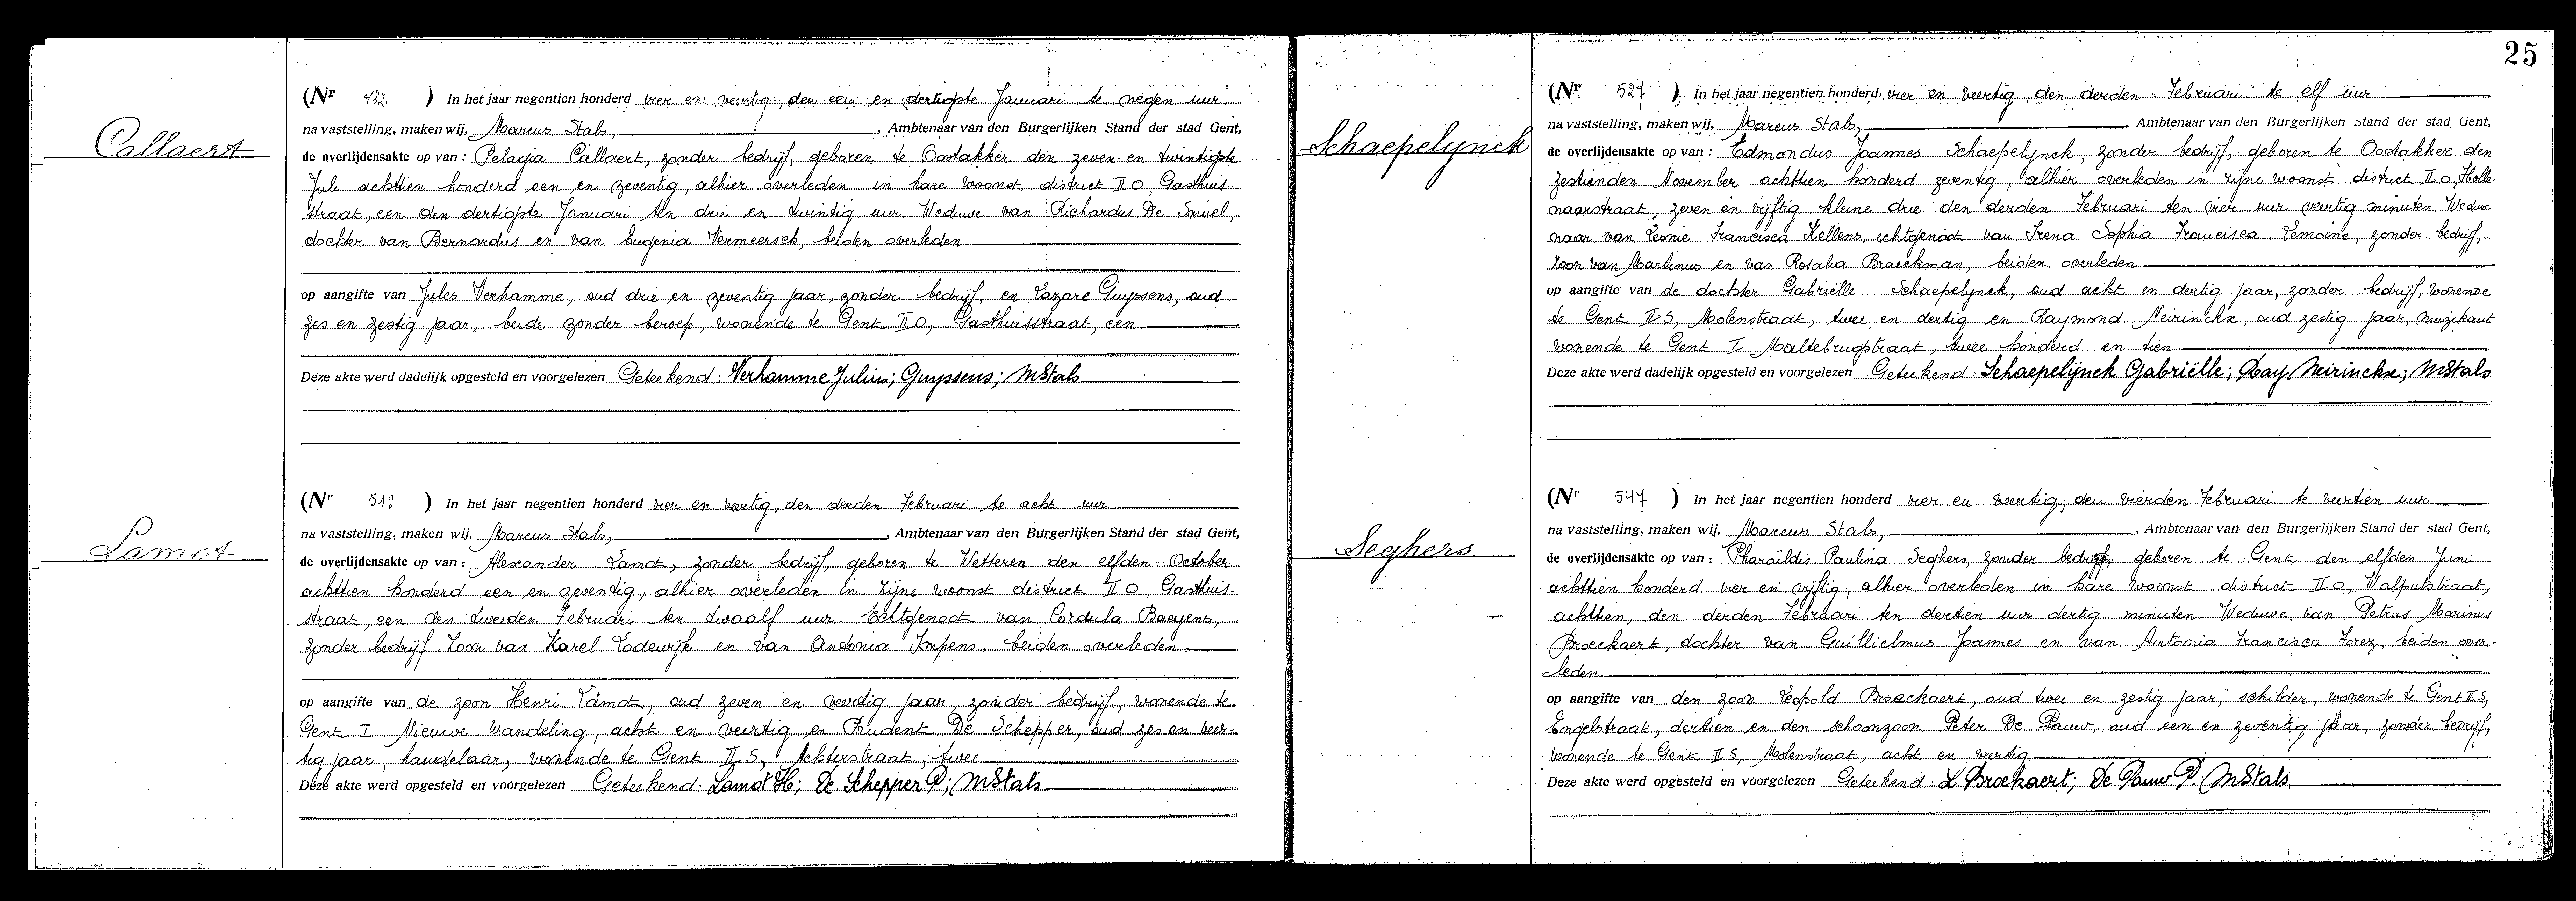 Callaert
(Nr 482 ) In het jaar negentien honderd vier en veertig, den een en dertigste Januari te negen uur
na vaststelling, maken wij, Marcus Stals, , Ambtenaar van den Burgerlijken Stand der stad Gent,
de overlijdensakte op van : Pelagia Callaert, zonder bedrijf, geboren te Oostakker den zeven en twintigste
Juli achttien honderd een en zeventig, alhier overleden in hare woonst district II O, Gasthuis-
straat, een den dertigste Januari ten drie en twintig uur. Weduwe van Richardus De Smuel,
dochter van Bernardus en van Eugenia Vermeersch, beiden overleden.
op aangifte van Jules Verhamme, oud drie en zeventig jaar, zonder bedrijf, en Lazare Guyssens, oud
zes en zestig jaar, beide zonder beroep, woonende te Gent II O, Gasthuisstraat, een.
Deze akte werd dadelijk opgesteld en voorgelezen Geteekend: Verhamme Julius; Guyssens; MStals
Lamot
(Nr 513 ) In het jaar negentien honderd vier en veertig, den derden Februari te acht uur
na vaststelling, maken wij, Marcus Stals, , Ambtenaar van den Burgerlijken Stand der stad Gent,
de overlijdensakte op van : Alexander Lamot, zonder bedrijf, geboren te Wetteren den elfden October
achttien honderd een en zeventig, alhier overleden in zijne woonst district II O, Gasthuis-
straat, een den tweeden Februari ten twaalf uur. Echtgenoot van Cordula Baeyens,
zonder bedrijf Zoon van Karel Lodewijk en van Antonia Impens, beiden overleden.
op aangifte van de zoon Henri Lamot, oud zeven en veertig jaar, zonder bedrijf, wonende te
Gent I Nieuwe Wandeling, acht en veertig en Prudent De Schepper, oud zes en veer-
tig jaar, handelaar, wonende te Gent II S, Achterstraat, twee
Deze akte werd opgesteld en voorgelezen Geteekend: Lamot H; De Schepper P; MStals
25
Schaepelynck
(Nr 527 ) In het jaar negentien honderd vier en veertig, den derden Februari te elf uur
na vaststelling, maken wij, Marcus Stals, Ambtenaar van den Burgerlijken Stand der stad Gent,
de overlijdensakte op van : Edmondus Joannes Schaepelynck, zonder bedrijf, geboren te Oostakker den
zestienden November achttien honderd zeventig, alhier overleden in zijne woonst district II O, Holle-
naarstraat, zeven en vijftig kleine drie den derden Februari ten vier uur veertig minuten. Weduw-
naar van Leonie Francisca Kellens, echtgenoot van Irena Sophia Francisca Lemoine, zonder bedrijf,
Zoon van Martinus en van Rosalia Braeckman, beiden overleden.
op aangifte van de dochter Gabriëlle Schaepelynck, oud acht en dertig jaar, zonder bedrijf, wonende
te Gent II S, Molenstraat, twee en dertig en Raymond Neirinckx, oud zestig jaar, muzikant
wonende te Gent I Maltebrugstraat, twee honderd en tien
Deze akte werd dadelijk opgesteld en voorgelezen Geteekend: Schaepelynck Gabriëlle; Ray Neirinckx; MStals
Seghers
(Nr 547 ) In het jaar negentien honderd vier en veertig, den vierden Februari te veertien uur
na vaststelling, maken wij, Marcus Stals, , Ambtenaar van den Burgerlijken Stand der stad Gent,
de overlijdensakte op van : Pharaïldis Paulina Seghers, zonder bedrijf, geboren te Gent den elfden Juni
achttien honderd vier en vijftig, alhier overleden in hare woonst district II O, Walputstraat,
achttien, den derden Februari ten dertien uur dertig minuten. Weduwe van Petrus Marinus
Broeckaert, dochter van Guillielmus Joannes en van Antonia Francisca Forez, beiden over-
leden.
op aangifte van den zoon Leopold Broeckaert, oud twee en zestig jaar, schilder, wonende te Gent II S,
Engelstraat, dertien en den schoonzoon Peter De Pauw, oud een en zeventig jaar, zonder bedrijf,
wonende te Gent II S, Molenstraat, acht en veertig
Deze akte werd opgesteld en voorgelezen Geteekend: L Broekaert; De Pauw P. MStals